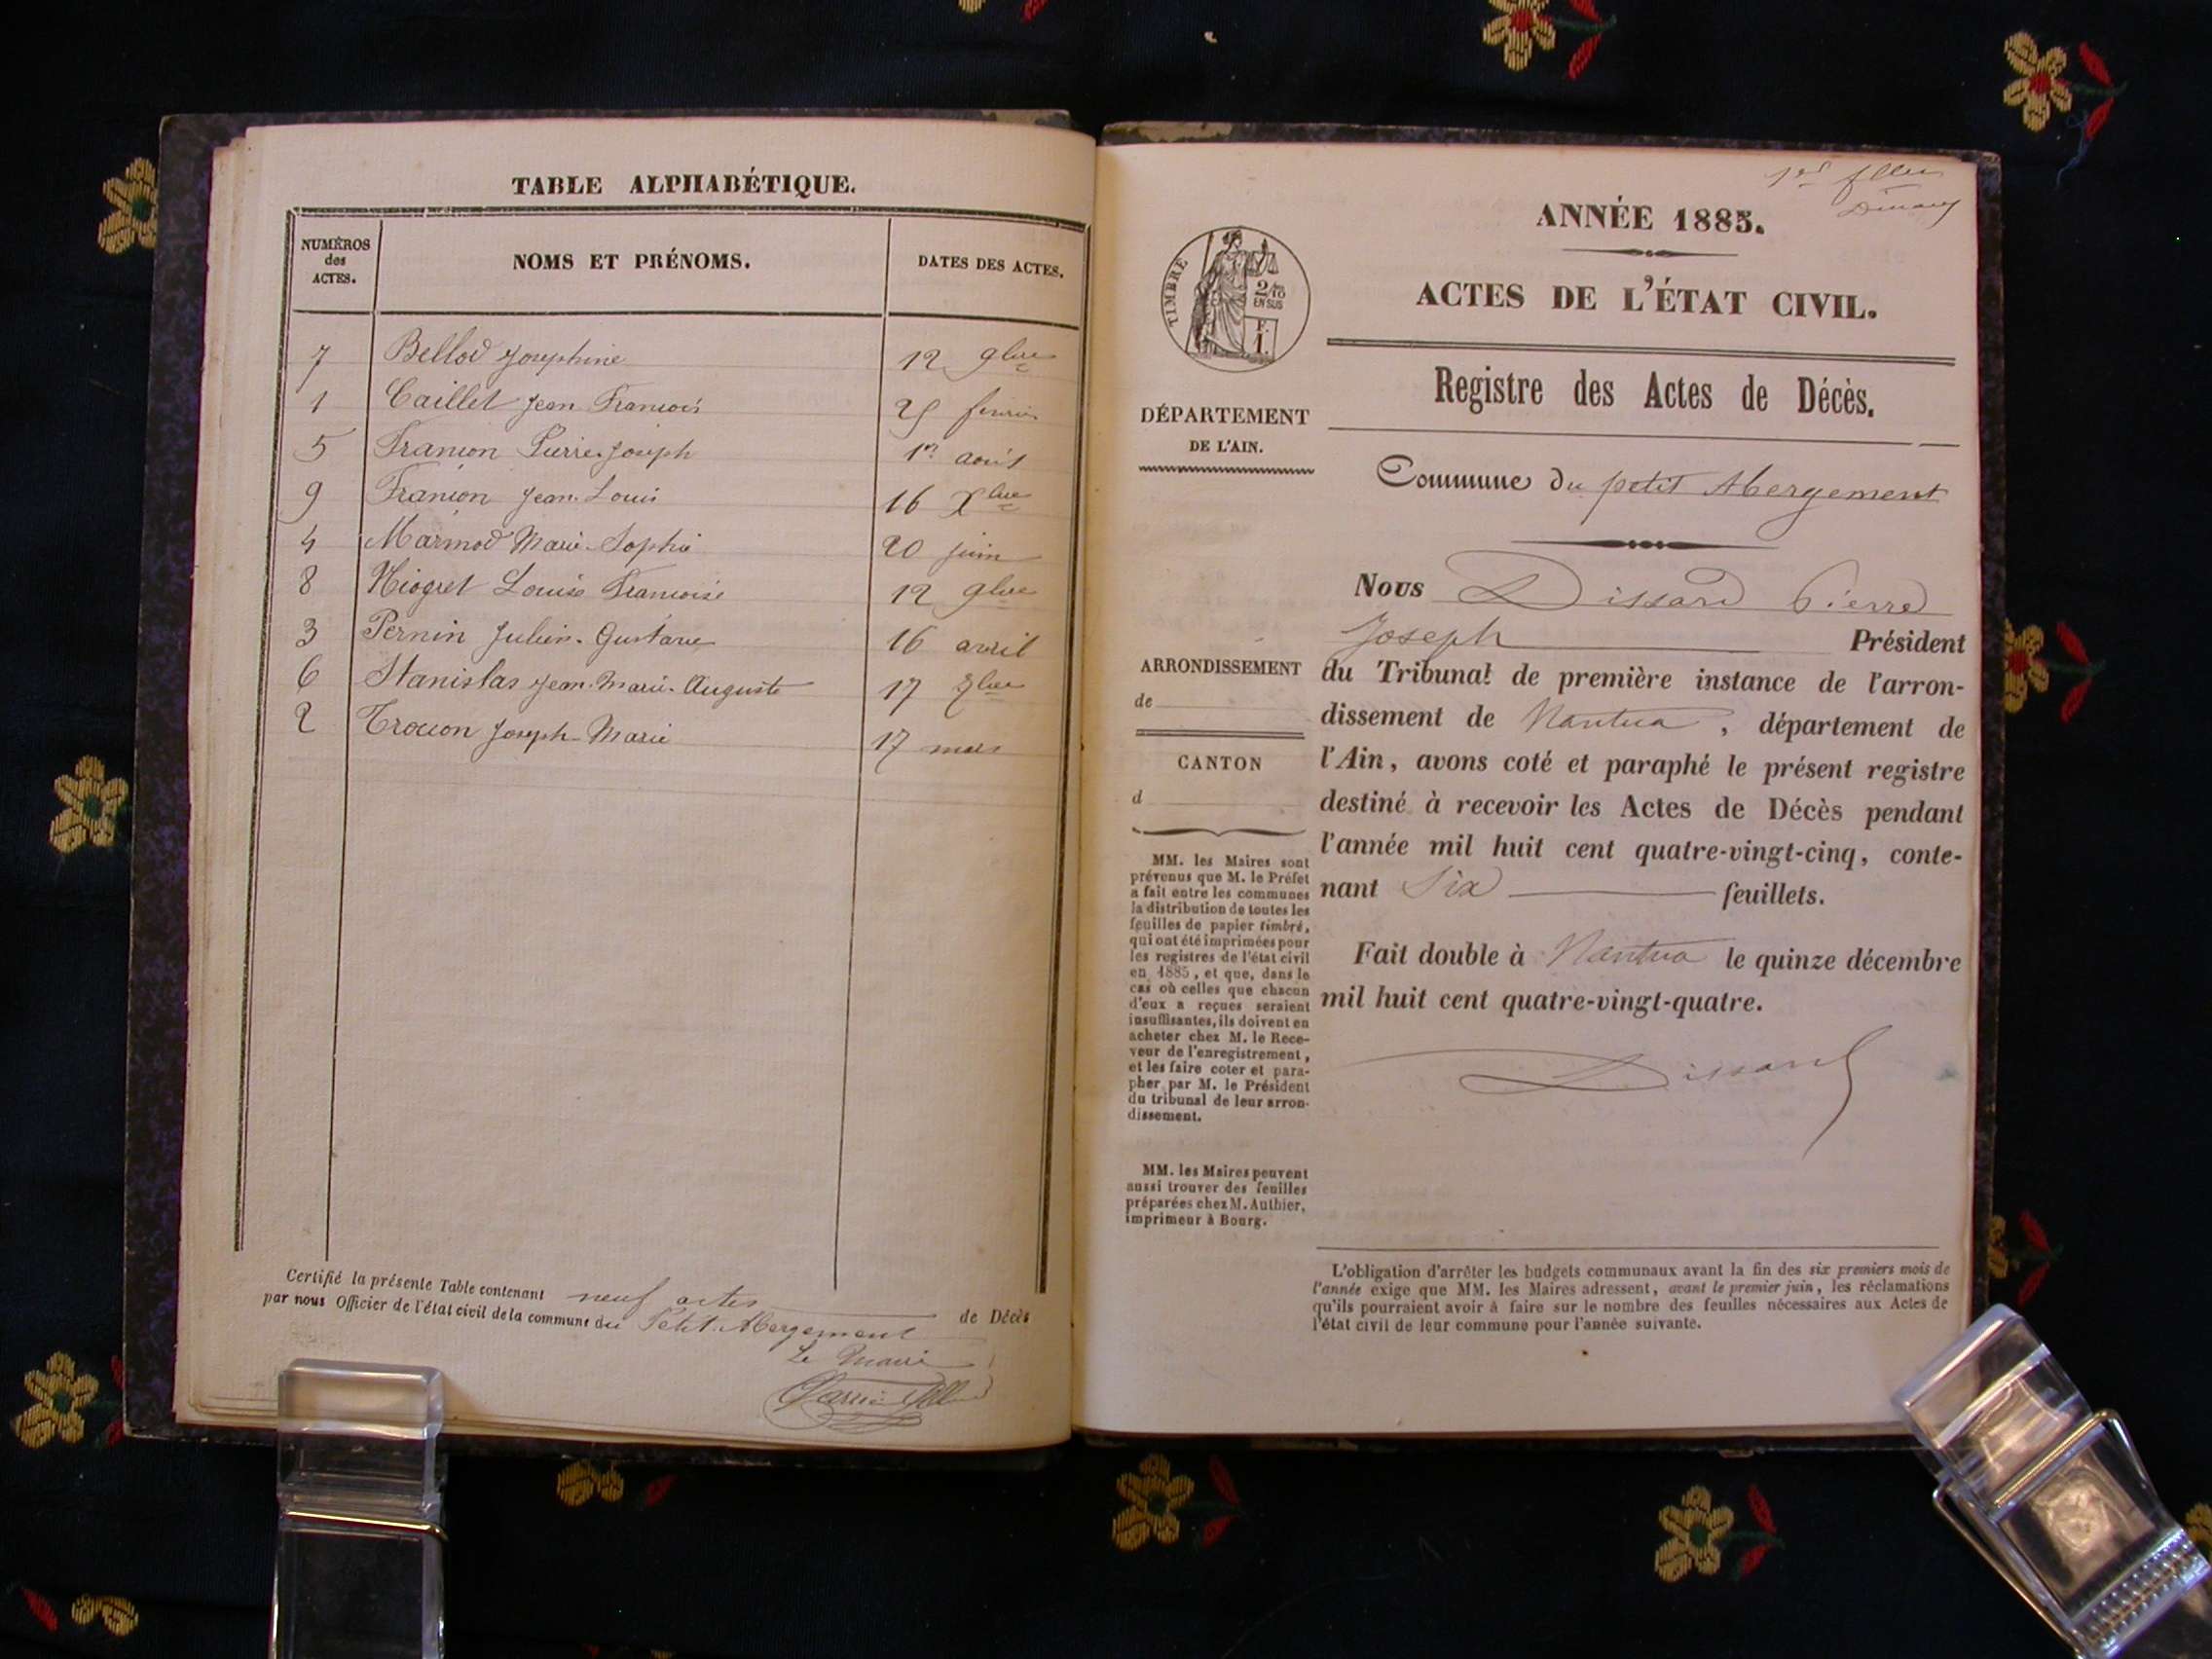 TABLE ALPHABÉTIQUE.
NUMÉROS des ACTES.
NOMS ET PRÉNOMS.
DATES DES ACTES.
7 Bellod Josephine 12 9bre
1 Caillet Jean François 25 février
5 Francon Pierre-Joseph 1er août
9 Francon Jean-Louis 16 Xbre
4 Marmod Marie-Sophie 20 juin
8 Niogret Louise Françoise 12 9bre
3 Pernin Julien-Gustave 16 avril
6 Stanislas Jean-Marie-Auguste 17 8bre
2 Trocon Joseph-Marie 17 mars
Certifié la présente Table contenant neuf actes de Décès
par nous Officier de l'état civil de la commune du Petit-Abergement
Le Maire
ANNÉE 1885.
ACTES DE L'ÉTAT CIVIL.
TIMBRE
2/10
EN SUS
F.
1.
Registre des Actes de Décès.
DÉPARTEMENT
DE L'AIN.
Commune du petit Abergement
Nous Dissard Pierre
Joseph Président
du Tribunal de première instance de l'arron-
dissement de Nantua, département de
l'Ain, avons coté et paraphé le présent registre
destiné à recevoir les Actes de Décès pendant
l'année mil huit cent quatre-vingt-cinq, conte-
nant Six feuillets.
Fait double à Nantua le quinze décembre
mil huit cent quatre-vingt-quatre.
Dissard
ARRONDISSEMENT
de
CANTON
d
MM. les Maires sont
prévenus que M. le Préfet
a fait entre les communes
la distribution de toutes les
feuilles de papier timbré,
qui ont été imprimées pour
les registres de l'état civil
en 1885, et que, dans le
cas où celles que chacun
d'eux a reçues seraient
insuffisantes, ils doivent en
acheter chez M. le Rece-
veur de l'enregistrement,
et les faire coter et para-
pher par M. le Président
du tribunal de leur arron-
dissement.
MM. les Maires peuvent
aussi trouver des feuilles
préparées chez M. Authier,
imprimeur à Bourg.
L'obligation d'arrêter les budgets communaux avant la fin des six premiers mois de
l'année exige que MM. les Maires adressent, avant le premier juin, les réclamations
qu'ils pourraient avoir à faire sur le nombre des feuilles nécessaires aux Actes de
l'état civil de leur commune pour l'année suivante.